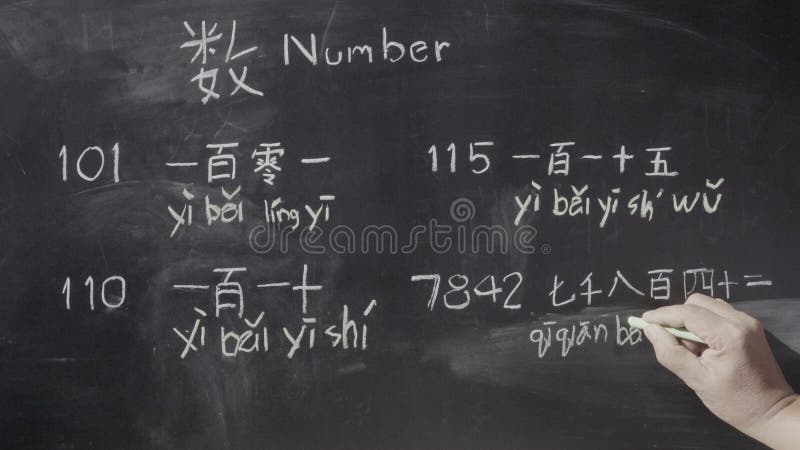 数 Number
101 一百零一
yì bǎi líng yī
110 一百一十
yì bǎi yī shí
115 一百一十五
yì bǎi yī sh' wǔ
7842 七千八百四十二
qī qiān bā
dreamstime